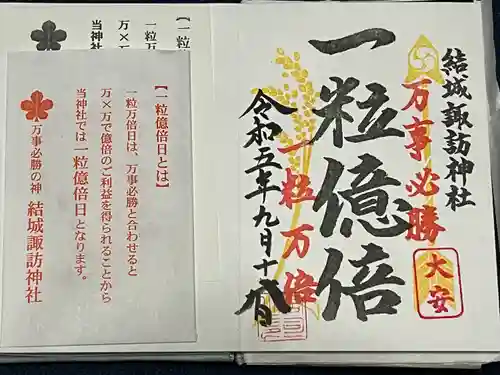 結城諏訪神社
万事必勝
大安
一粒億倍
一粒万倍
令和五年九月十八日
【一粒億倍日とは】
一粒万倍日は、万事必勝と合わせると
万×万で億倍のご利益を得られることから
当神社では一粒億倍日となります。
万事必勝の神 結城諏訪神社
【一粒
一粒万
万×万
当神社